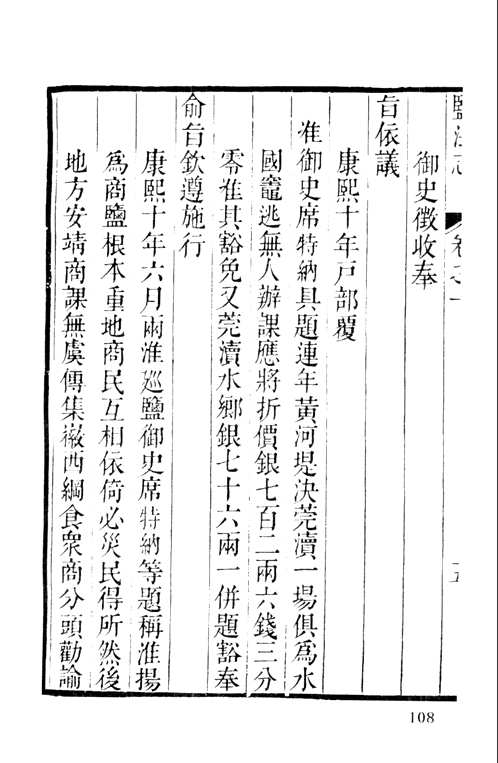 御史徵收奉
旨依議
康熙十年戸部覆
准御史席特納具題連年黃河堤決莞瀆一場俱爲水
國竈逃無人辦課應將折價銀七百二兩六錢三分
零准其豁免又莞瀆水鄉銀七十六兩一併題豁奉
俞旨欽遵施行
康熙十年六月兩淮巡鹽御史席特納等題稱淮揚
爲商鹽根本重地商民互相依倚必災民得所然後
地方安靖商課無虞傳集徽西綱食衆商分頭勸諭
108